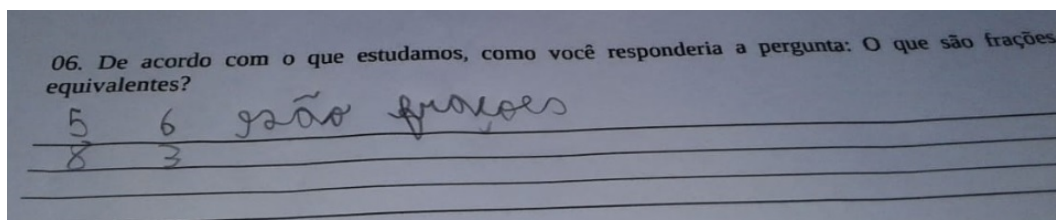 06. De acordo com o que estudamos, como você responderia a pergunta: O que são frações
equivalentes?
5 6 são frações
8 3